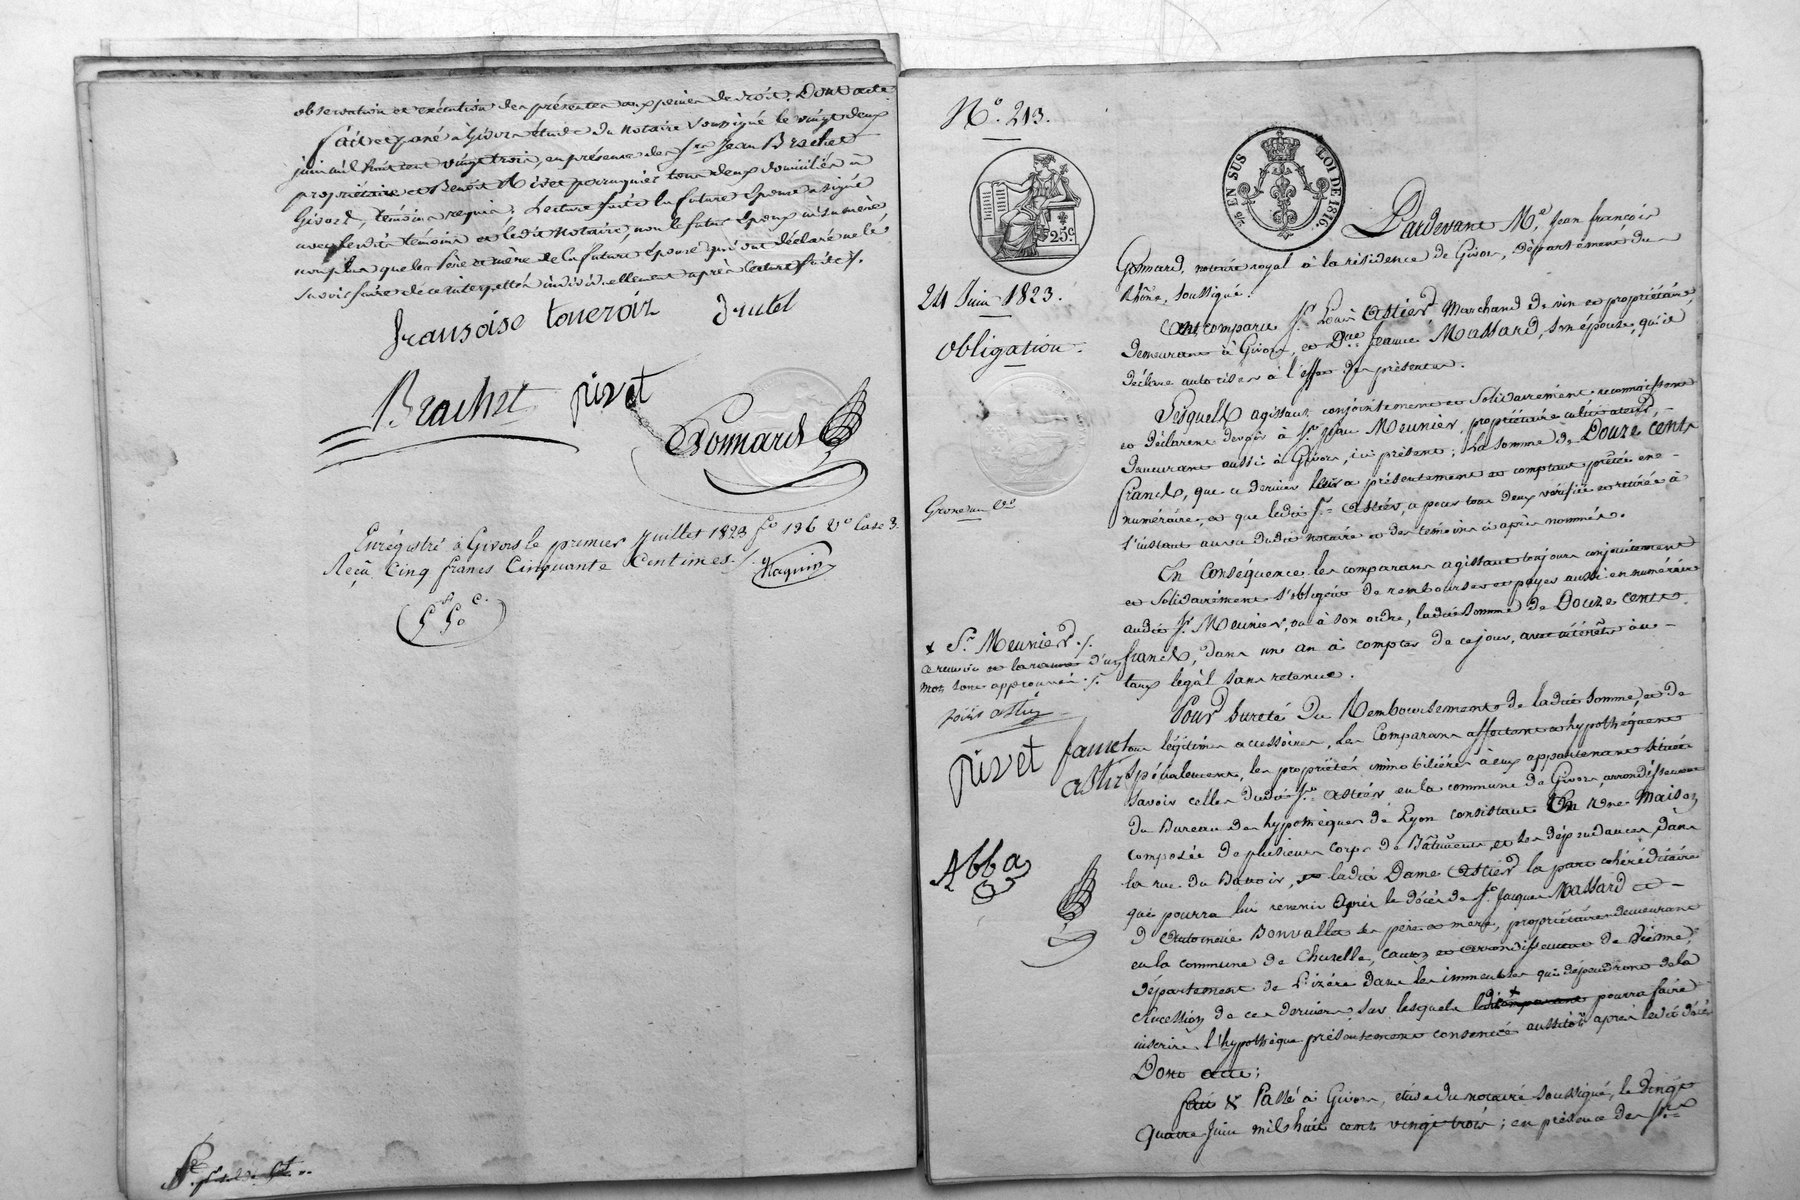 observation et exécution des présentes aux peines de droit. Dont acte
fait et passé à Givors étude du notaire soussigné le vingt deux
juin mil huit cent vingt trois, en présence des Srs Jean Brachet
propriétaire et Benoit Rivet perruquier tous deux domiciliés à
Givors, témoins requis; Lecture faite la future épouse a signé
avec lesdits témoins et ledit notaire, non le futur époux ni sa mère
non plus que les père et mère de la future épouse qui ont déclaré ne le
savoir faire de ce interpellés individuellement après lecture faite ./.
fransoise toneroir
Brachet rivet
Gonnard
Enrégistré à Givors le premier Juillet 1823 fo 136 Vo Case 3.
Reçu Cinq francs Cinquante Centimes ./.
No. 213.
EN SUS LOI DE 1816.
25c
24 Juin 1823.
Obligation.
Pardevant Me. Jean françois
Gonnard, notaire royal à la résidence de Givors, département du
Rhône, soussigné.
Ont comparu Sr. Louis Astier, Marchand de vin et propriétaire,
demeurant à Givors, et Dme Jeanne Massard, son épouse, qu'il
déclare autoriser à l'effet des présentes.
Lesquels agissant conjointement et solidairement reconnaissent
et déclarent devoir à Sr. Jean Meunier, propriétaire cultivateur,
demeurant aussi à Givors, ici présent; la somme de Douze cents
francs, que ce dernier leur a présentement et comptant prêtée en
numéraire, et que ledit Sr. Astier, a pour tous deux vérifiée et retirée à
l'instant au vu dudit notaire et des témoins ci après nommés.
En conséquence les comparans agissant toujours conjointement
et solidairement s'obligent de rembourser et payer aussi en numéraire
audit Sr. Meunier, ou à son ordre, ladite somme de Douze cents
francs, dans un an à compter de ce jour, avec intérêts au
taux légal sans retenue.
Pour sureté du Remboursement de ladite somme, et de
tous légitimes accessoires, les Comparans affectent et hypothèquent
spécialement, les propriétés immobilières à eux appartenant situées
savoir celles dudit Sr. Astier en la commune de Givors, arrondissement
du Bureau des hypothèques de Lyon consistant En Une Maison
composée de plusieurs corps de Bâtiment et ses dépendances, dans
la rue du Battoir, et ladite Dame Astier la part cohéréditaire
qui pourra lui revenir après le décès de Sr. Jacques Massard et
d'Antoinette Bonvallet ses père et mère, propriétaires demeurant
en la commune de Chuzelle, canton et arrondissement de Vienne,
département de l'izère dans les immeubles qui dépendront de la
succession de ces derniers, sur lesquels ledit + comparant pourra faire
inscrire l'hypothèque présentement consentie aussitôt après ledit décès
Dont acte;
fait & Passé à Givors, étude du notaire soussigné, le vingt
quatre Juin mil huit cent vingt trois; en présence des Srs
+ Sr. Meunier ./.
mots sont approuvés ./.
rivet
Abba